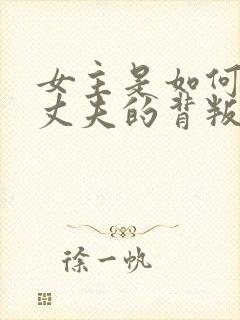 女主是如何
丈夫的背叛
徐一帆